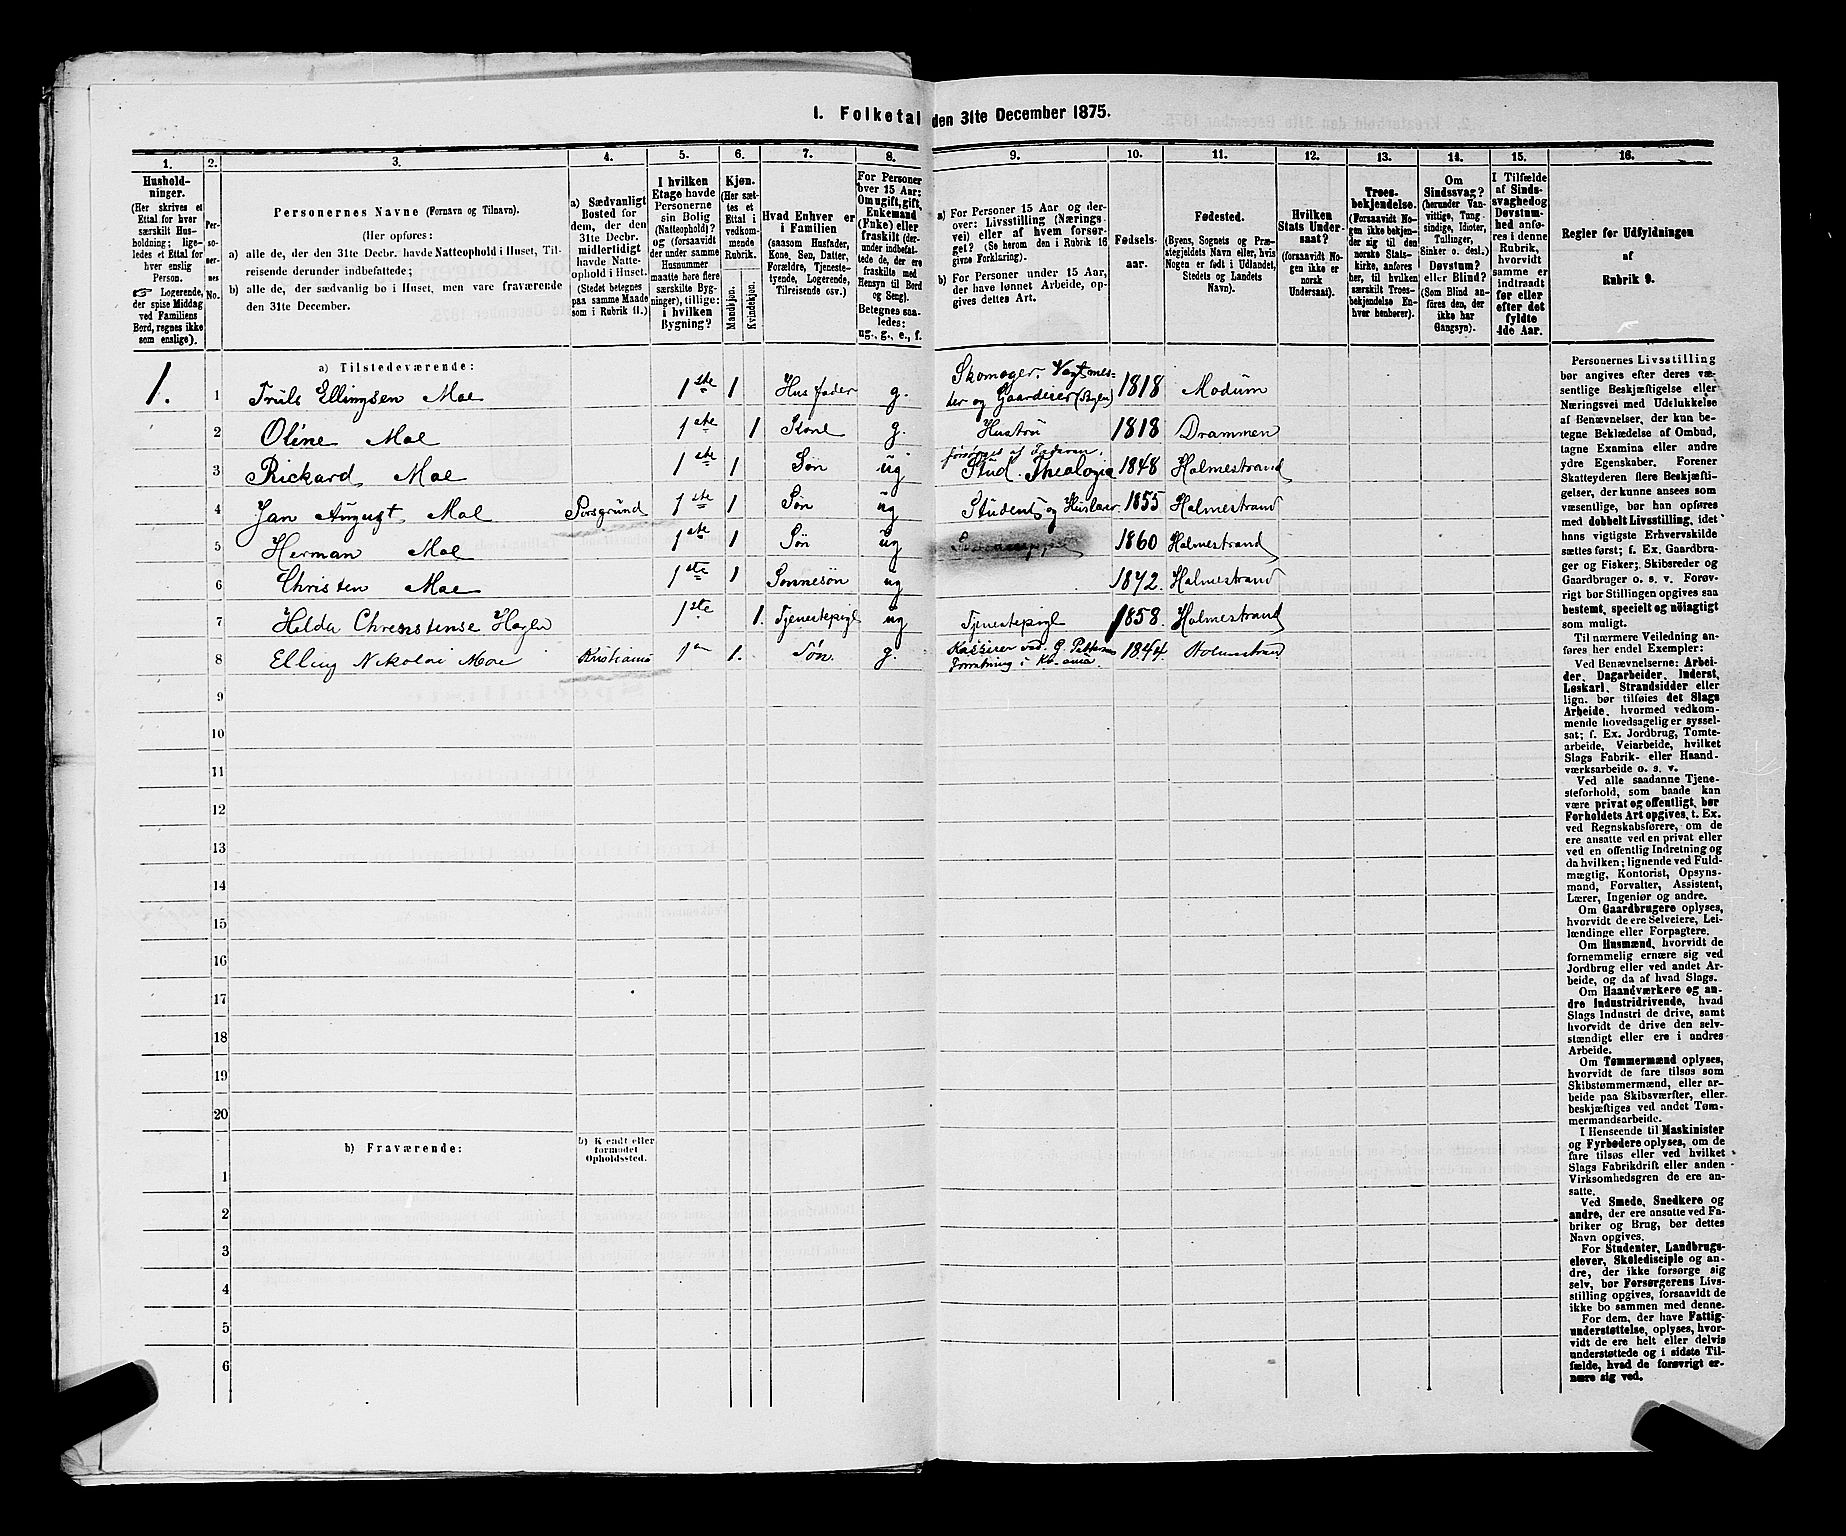 1. Folketal den 31te December 1875.
1. 2. 3. 4. 5. 6. 7. 8. 9. 10. 11. 12. 13. 14. 15. 16.
Hushold-
ninger.
(Her skrives et
Ettal for hver
særskilt Hus-
holdning; lige-
ledes et Ettal for
hver enslig
Person.
☞ Logerende,
der spise Middag
ved Familiens
Bord, regnes ikke
som enslige).
Per-
so-
ner-
nes
No.
Personernes Navne (Fornavn og Tilnavn).
(Her opføres:
a) alle de, der den 31te Decbr. havde Natteophold i Huset, Til-
reisende derunder indbefattede;
b) alle de, der sædvanlig bo i Huset, men vare fraværende
den 31te December.
a) Sædvanligt
Bosted for
dem, der den
31te Decbr.
midlertidigt
havde Natte-
ophold i Huset.
(Stedet betegnes
paa samme Maade
som i Rubrik 11.)
I hvilken
Etage havde
Personerne
sin Bolig
(Natteophold)?
og (forsaavidt
der under samme
Husnummer
maatte høre flere
særskilte Byg-
ninger), tillige:
i hvilken
Bygning?
Kjøn.
(Her sæt-
tes et
Ettal i
vedkom-
mende
Rubrik.
Mandkjøn.
Kvindekjøn.
Hvad Enhver er
i Familien
(saasom Husfader,
Kone, Søn, Datter,
Forældre, Tjeneste-
tyende, Logerende,
Tilreisende osv.)
For Personer
over 15 Aar:
Om ugift, gift,
Enkemand
(Enke) eller
fraskilt (der-
under indbefat-
tede de, der ere
fraskilte med
Hensyn til Bord
og Seng).
Betegnes saa-
ledes:
ug., g., e., f.
a) For Personer 15 Aar og der-
over: Livsstilling (Nærings-
vei) eller af hvem forsør-
get? (Se herom den i Rubrik 16
givne Forklaring).
b) For Personer under 15 Aar,
der have lønnet Arbeide, op-
gives dettes Art.
Fødsels-
aar.
Fødested.
(Byens, Sognets og Præ-
stegjeldets Navn eller, hvis
Nogen er født i Udlandet,
Stedets og Landets
Navn).
Hvilken
Stats Under-
saat?
(forsaavidt No-
gen ikke er
norsk
Undersaat).
Troes-
bekjendelse.
(Forsaavidt No-
gen ikke bekjen-
der sig til den
norske Stats-
kirke, anføres
her, til hvilken
særskilt Troes-
bekjendelse En-
hver henhører).
Om
Sindssvag?
(herunder Van-
vittige, Tung-
sindige, Idioter,
Tullinger,
Sinker o. desl.)
Døvstum?
eller Blind?
(Som Blind an-
føres den, der
ikke har
Gangsyn).
I Tilfælde
af Sinds-
svaghed og
Døvstum-
hed anfø-
res i denne
Rubrik,
hvorvidt
samme er
indtraadt
før eller
efter det
fyldte
4de Aar.
Regler for Udfyldningen
af
Rubrik 9.
a) Tilstedeværende:
1. 1 Truls Ellingsen Moe 1ste 1 Husfader g. Skomager, Vagtmes-
ter og Gaardeier (Byen) 1818 Modum
2 Oline Moe 1ste 1 Kone g. Hustru 1818 Drammen
3 Rickard Moe 1ste 1 Søn ug forsørges af Faderen,
Stud. Theologia 1848 Holmestrand
4 Jan August Moe Porsgrund 1ste 1 Søn ug Student og Huslærer 1855 Holmestrand
5 Herman Moe 1ste 1 Søn ug 1860 Holmestrand
6 Christen Moe 1ste 1 Sønnesøn ug 1872. Holmestrand
7 1ste 1. Tjenestepige ug Tjenestepige 1858. Holmestrand
8 Elling Nikolai Moe Kristiania 1. Søn. g. Kasserer ved G. Pettersens
Forretning i Kr.ania. 1844. Holmestrand
9
10
11
12
13
14
15
16
17
18
19
20
b) Fraværende:
b) Kjendt eller
formodet
Opholdssted.
1
2
3
4
5
6
Personernes Livsstilling
bør angives efter deres væ-
sentlige Beskjæftigelse eller
Næringsvei med Udelukkelse
af Benævnelser, der kun be-
tegne Beklædelse af Ombud,
tagne Examina eller andre
ydre Egenskaber. Forener
Skatteyderen flere Beskjæfti-
gelser, der kunne ansees som
væsentlige, bør han opføres
med dobbelt Livsstilling, idet
hans vigtigste Erhvervskilde
sættes først; f. Ex. Gaardbru-
ger og Fisker; Skibsreder og
Gaardbruger o. s. v. Forøv-
rigt bør Stillingen opgives saa
bestemt, specielt og nøiagtigt
som muligt.
Til nærmere Veiledning an-
føres her endel Exempler:
Ved Benævnelserne: Arbei-
der, Dagarbeider, Inderst,
Løskarl, Strandsidder eller
lign. bør tilføies det Slags
Arbeide, hvormed vedkom-
mende hovedsagelig er syssel-
sat; f. Ex. Jordbrug, Tomte-
arbeide, Veiarbeide, hvilket
Slags Fabrik- eller Haand-
værksarbeide o. s. v.
Ved alle saadanne Tjene-
steforhold, som baade kan
være privat og offentligt, bør
Forholdets Art opgives, t. Ex.
ved Regnskabsførere, om de
ere ansatte ved en privat eller
ved en offentlig Indretning og
da hvilken; lignende ved Fuld-
mægtig, Kontorist, Opsyns-
mand, Forvalter, Assistent,
Lærer, Ingeniør og andre.
Om Gaardbrugere oplyses,
hvorvidt de ere Selveiere, Lei-
lændinge eller Forpagtere.
Om Husmænd, hvorvidt de
fornemmelig ernære sig ved
Jordbrug eller ved andet Ar-
beide, og da af hvad Slags.
Om Haandværkere og an-
dre Industridrivende, hvad
Slags Industri de drive, samt
hvorvidt de drive den selv-
stændigt eller ere i andres
Arbeide.
Om Tømmermænd oplyses,
hvorvidt de fare tilsøs som
Skibstømmermænd, eller ar-
beide paa Skibsværfter, eller
beskjæftiges ved andet Tøm-
mermandsarbeide.
I Henseende til Maskinister
og Fyrbødere oplyses, om de
fare tilsøs eller ved hvilket
Slags Fabrikdrift eller anden
Virksomhedsgren de ere an-
satte.
Ved Smede, Snedkere og
andre, der ere ansatte ved Fa-
briker og Brug, bør dettes
Navn opgives.
For Studenter, Landbrugs-
elever, Skoledisciple og an-
dre, der ikke forsørge sig
selv, bør Forsørgerens Livs-
stilling opgives, forsaavidt de
ikke bo sammen med denne.
For dem, der have Fattig-
understøttelse, oplyses, hvor-
vidt de ere helt eller delvis
understøttede og i sidste Til-
fælde, hvad de forøvrigt er-
nære sig ved.